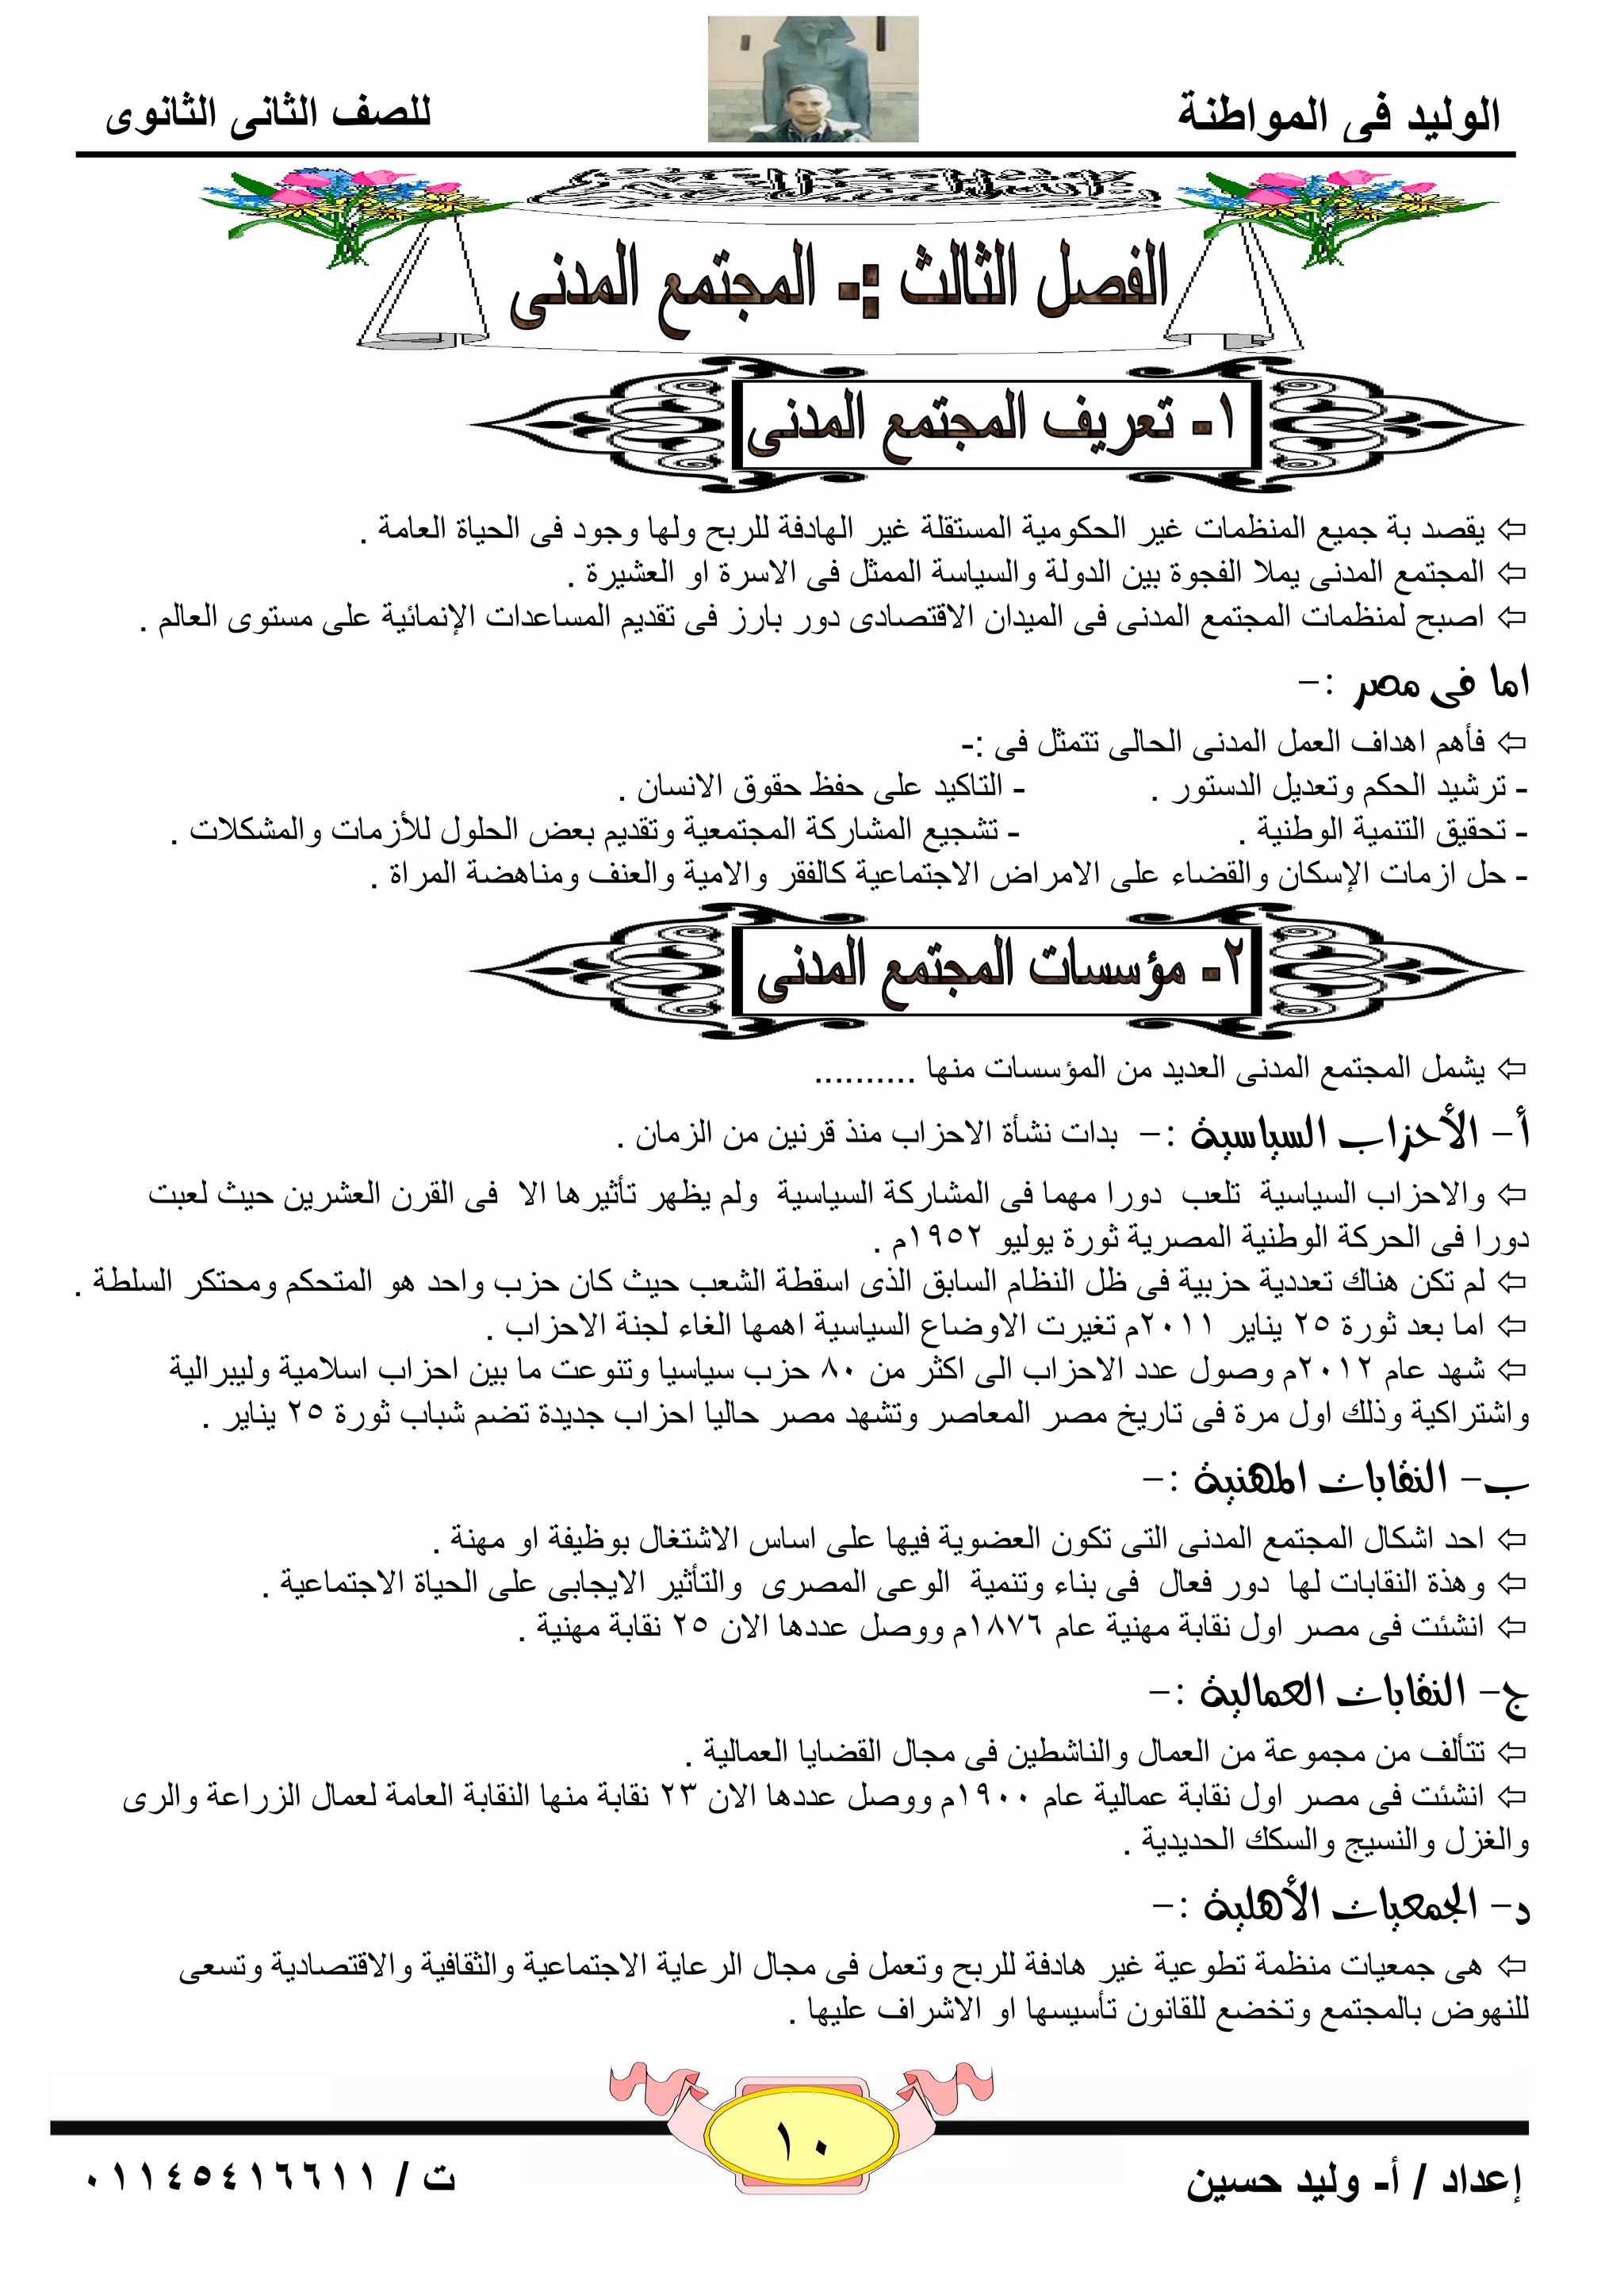 الوليد فى المواطنة
للصف الثانى الثانوى
الفصل الثالث :- المجتمع المدنى
١- تعريف المجتمع المدنى
⇦ يقصد بة جميع المنظمات غير الحكومية المستقلة غير الهادفة للربح ولها وجود فى الحياة العامة .
⇦ المجتمع المدنى يملا الفجوة بين الدولة والسياسة الممثل فى الاسرة او العشيرة .
⇦ اصبح لمنظمات المجتمع المدنى فى الميدان الاقتصادى دور بارز فى تقديم المساعدات الإنمائية على مستوى العالم .
اما فى مصر :-
⇦ فأهم اهداف العمل المدنى الحالى تتمثل فى :-
- ترشيد الحكم وتعديل الدستور . - التاكيد على حفظ حقوق الانسان .
- تحقيق التنمية الوطنية . - تشجيع المشاركة المجتمعية وتقديم بعض الحلول للأزمات والمشكلات .
- حل ازمات الإسكان والقضاء على الامراض الاجتماعية كالفقر والامية والعنف ومناهضة المراة .
٢- مؤسسات المجتمع المدنى
⇦ يشمل المجتمع المدنى العديد من المؤسسات منها ..........
أ- الأحزاب السياسية :- بدات نشأة الاحزاب منذ قرنين من الزمان .
⇦ والاحزاب السياسية تلعب دورا مهما فى المشاركة السياسية ولم يظهر تأثيرها الا فى القرن العشرين حيث لعبت
دورا فى الحركة الوطنية المصرية ثورة يوليو ١٩٥٢م .
⇦ لم تكن هناك تعددية حزبية فى ظل النظام السابق الذى اسقطة الشعب حيث كان حزب واحد هو المتحكم ومحتكر السلطة .
⇦ اما بعد ثورة ٢٥ يناير ٢٠١١م تغيرت الاوضاع السياسية اهمها الغاء لجنة الاحزاب .
⇦ شهد عام ٢٠١٢م وصول عدد الاحزاب الى اكثر من ٨٠ حزب سياسيا وتنوعت ما بين احزاب اسلامية وليبرالية
واشتراكية وذلك اول مرة فى تاريخ مصر المعاصر وتشهد مصر حاليا احزاب جديدة تضم شباب ثورة ٢٥ يناير .
ب- النقابات المهنية :-
⇦ احد اشكال المجتمع المدنى التى تكون العضوية فيها على اساس الاشتغال بوظيفة او مهنة .
⇦ وهذة النقابات لها دور فعال فى بناء وتنمية الوعى المصرى والتأثير الايجابى على الحياة الاجتماعية .
⇦ انشئت فى مصر اول نقابة مهنية عام ١٨٧٦م ووصل عددها الان ٢٥ نقابة مهنية .
ج- النقابات العمالية :-
⇦ تتألف من مجموعة من العمال والناشطين فى مجال القضايا العمالية .
⇦ انشئت فى مصر اول نقابة عمالية عام ١٩٠٠م ووصل عددها الان ٢٣ نقابة منها النقابة العامة لعمال الزراعة والرى
والغزل والنسيج والسكك الحديدية .
د- الجمعيات الأهلية :-
⇦ هى جمعيات منظمة تطوعية غير هادفة للربح وتعمل فى مجال الرعاية الاجتماعية والثقافية والاقتصادية وتسعى
للنهوض بالمجتمع وتخضع للقانون تأسيسها او الاشراف عليها .
١٠
إعداد / أ- وليد حسين
ت / ٠١١٤٥٤١٦٦١١